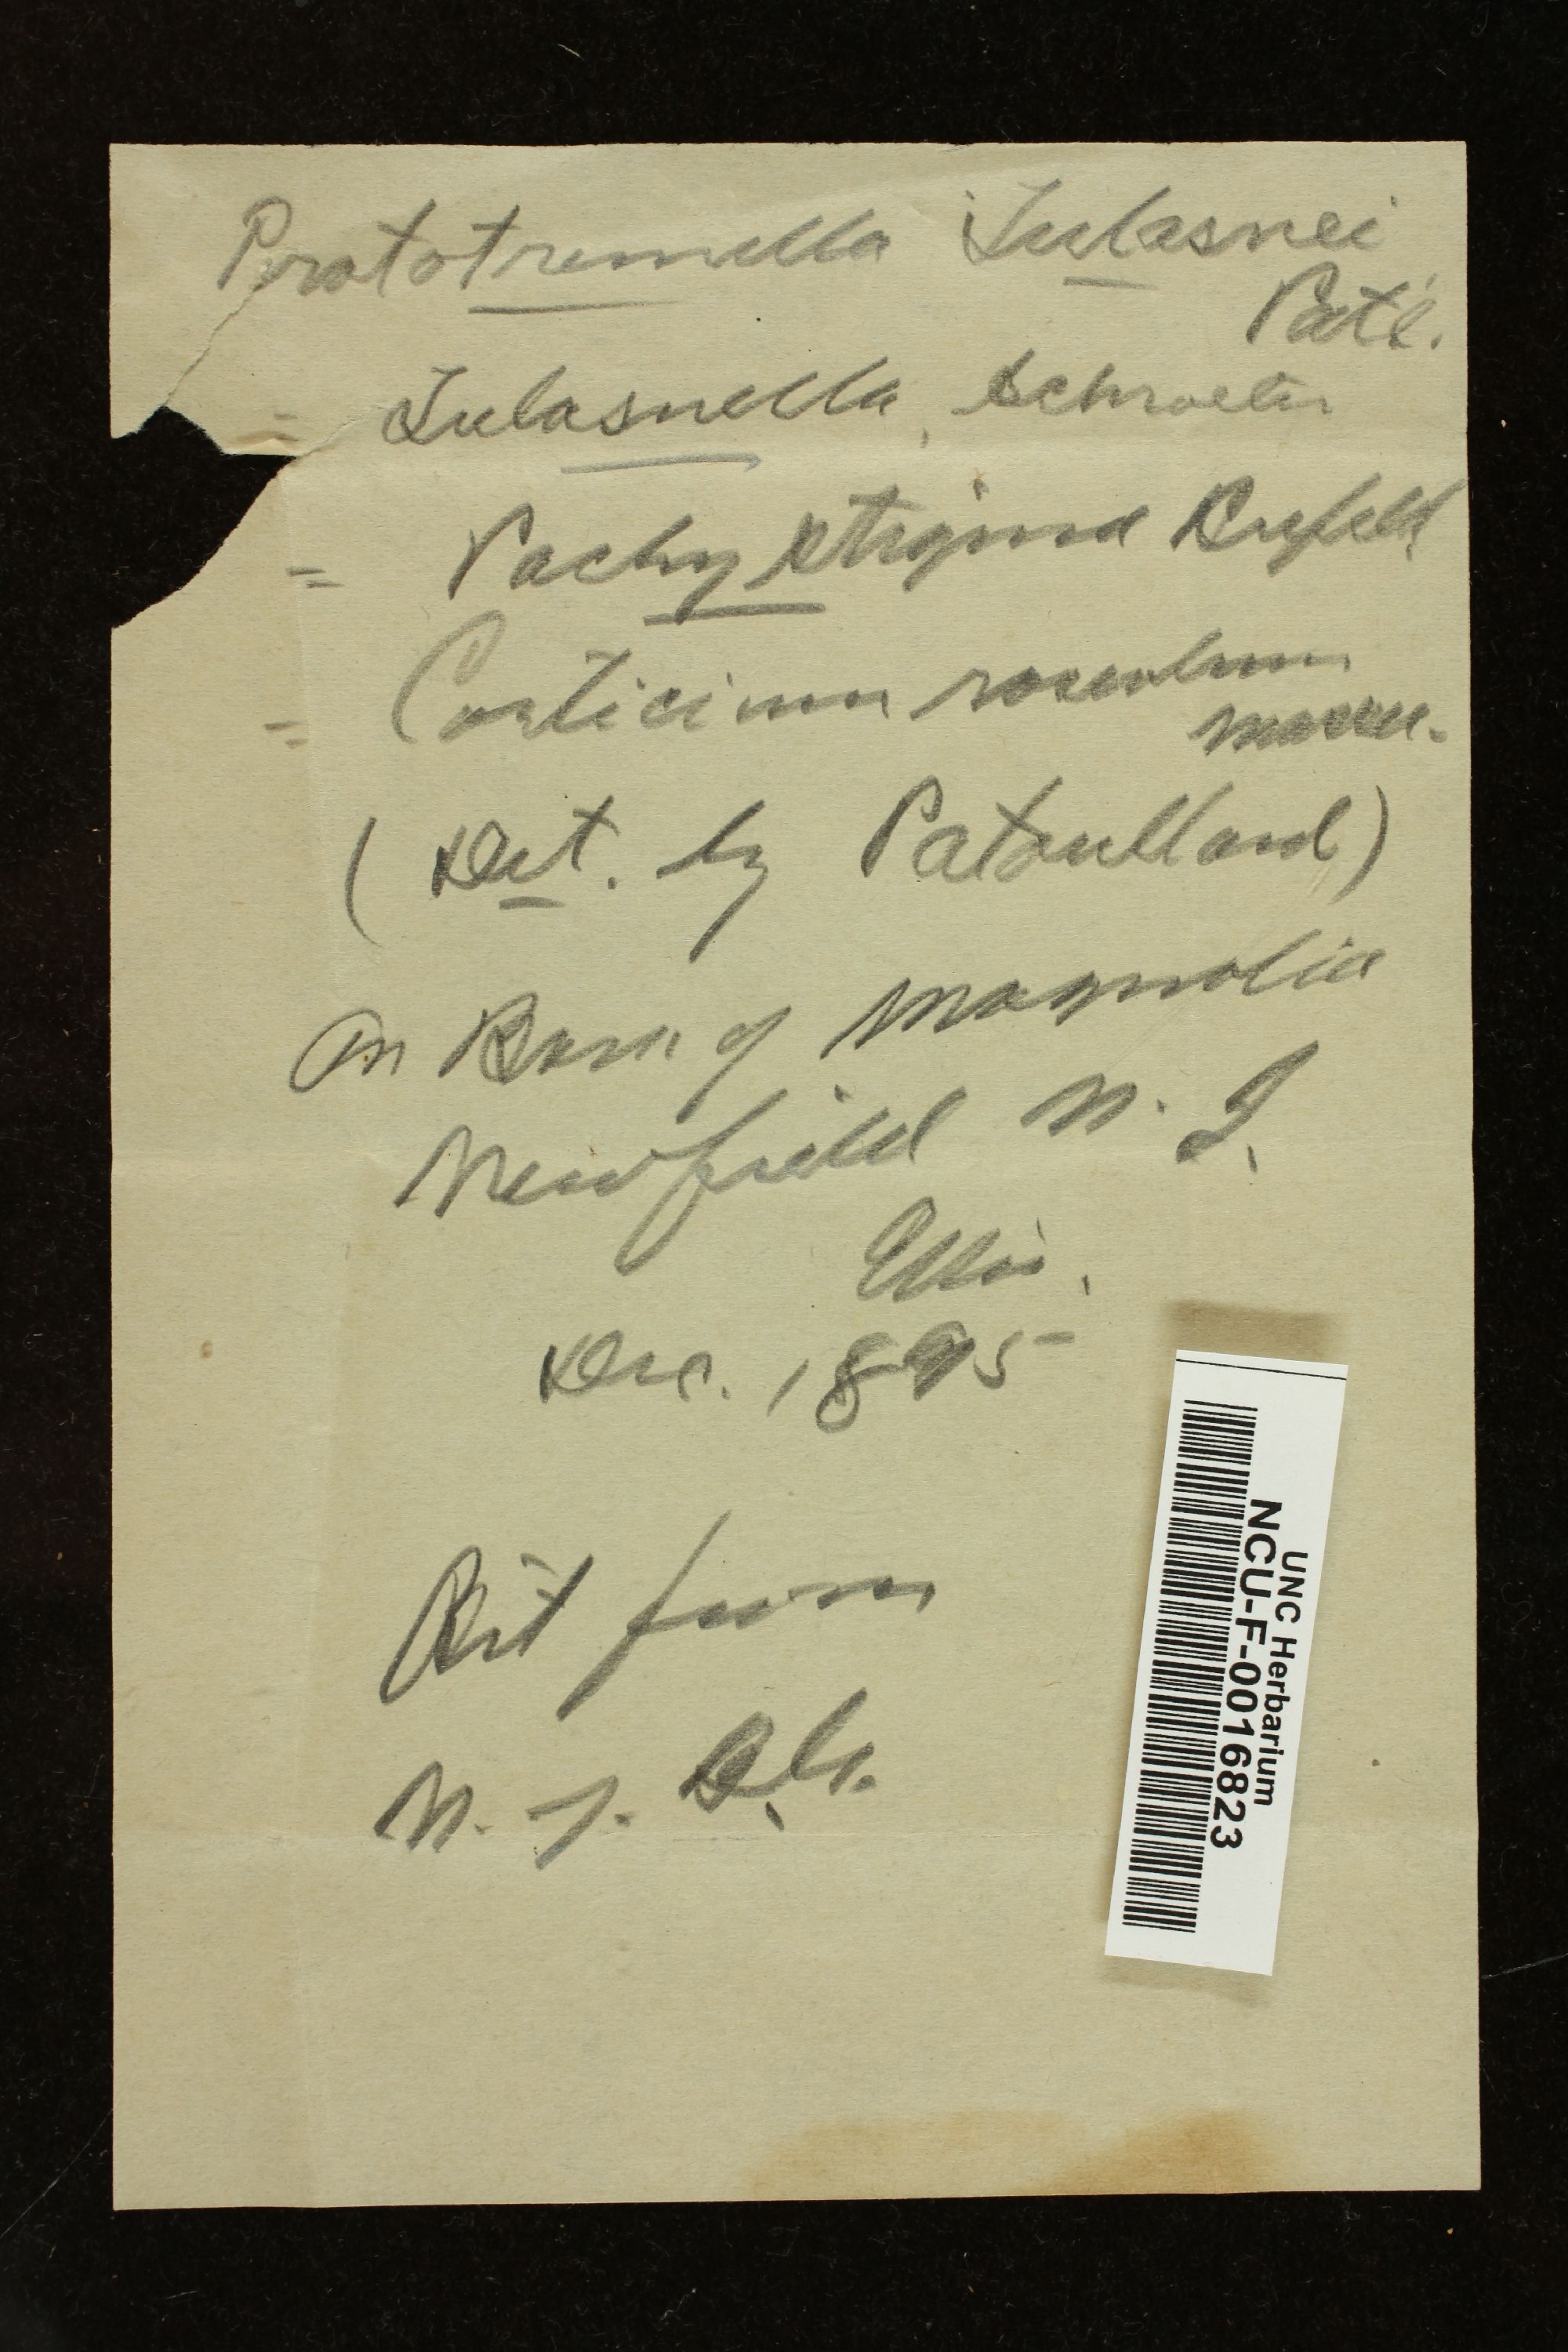 Prototremella Tulasnei
Pat.
= Tulasnella, Schroeter
= Pachysterigma Brefeld
= Corticium roseolum
Massee.
(Det. by Patouillard)
On Bark of Magnolia
Newfield N. J.
Ellis.
Dec. 1895
Bit from
N. Y.
UNC Herbarium
NCU-F-0016823